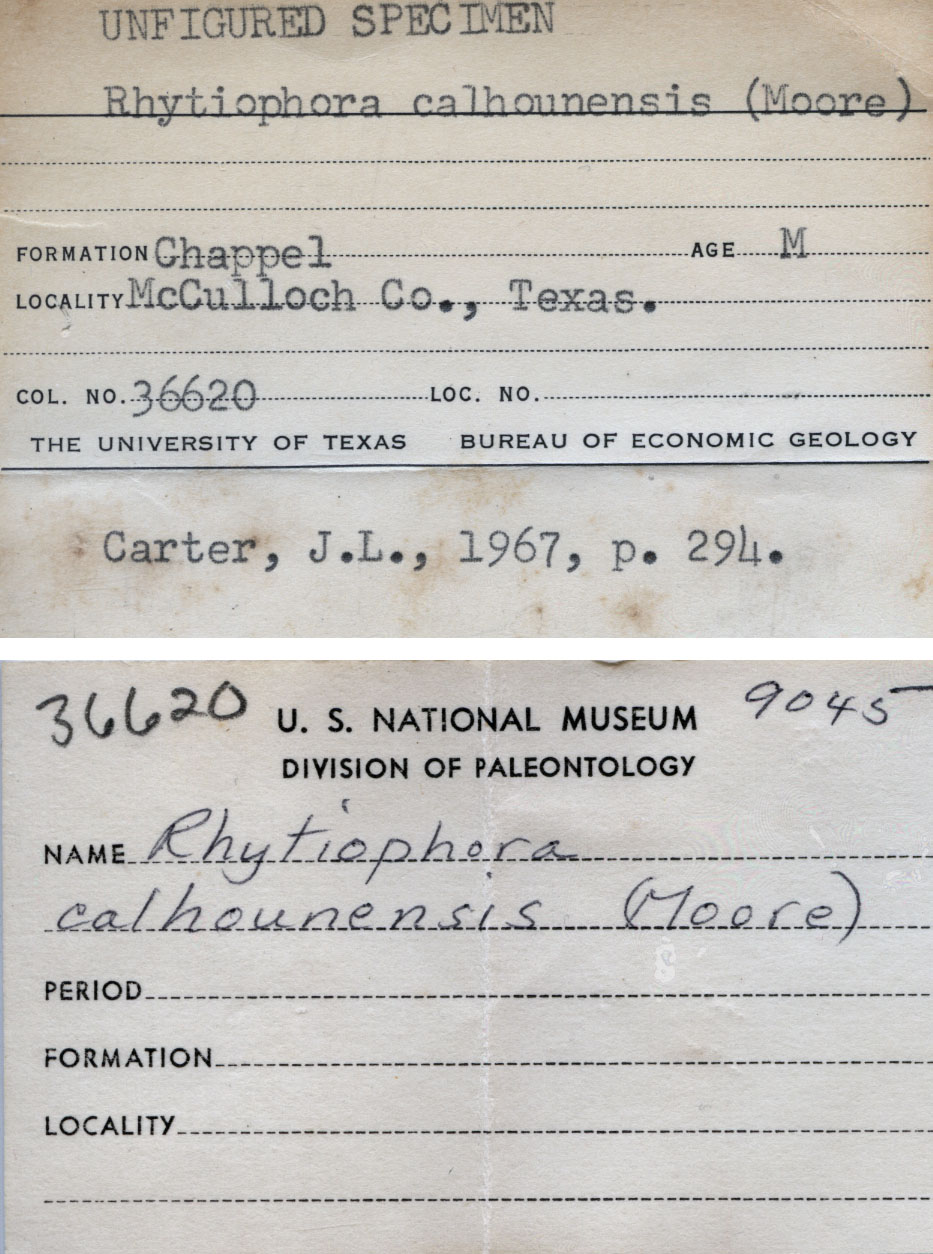 UNFIGURED SPECIMEN
Rhytiophora calhounensis (Moore)
FORMATION Chappel AGE M
LOCALITY McCulloch Co., Texas.
COL. NO. 36620 LOC. NO.
THE UNIVERSITY OF TEXAS BUREAU OF ECONOMIC GEOLOGY
Carter, J.L., 1967, p. 294.
36620 U. S. NATIONAL MUSEUM 9045
DIVISION OF PALEONTOLOGY
NAME Rhytiophora
calhounensis (Moore)
PERIOD
FORMATION
LOCALITY